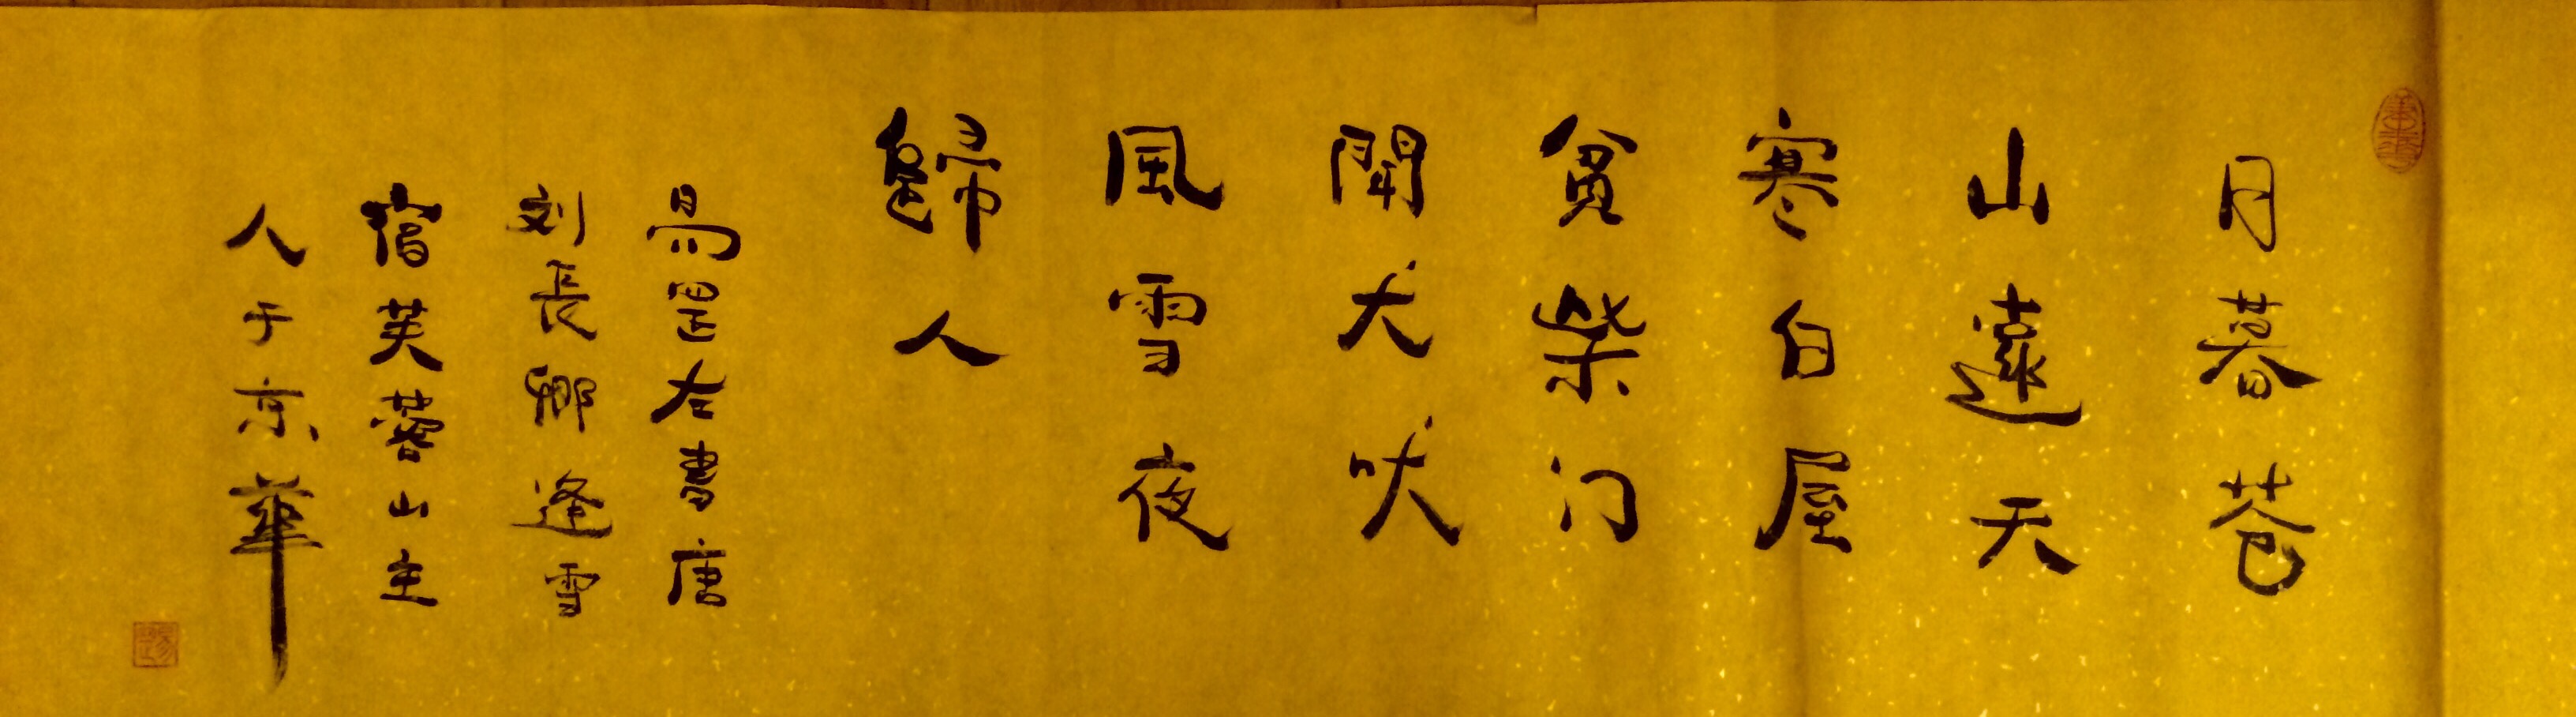 月暮苍
山遠天
寒白屋
貧柴门
聞犬吠
風雪夜
歸人
易罡左書唐
刘長卿逢雪
宿芙蓉山主
人于京華